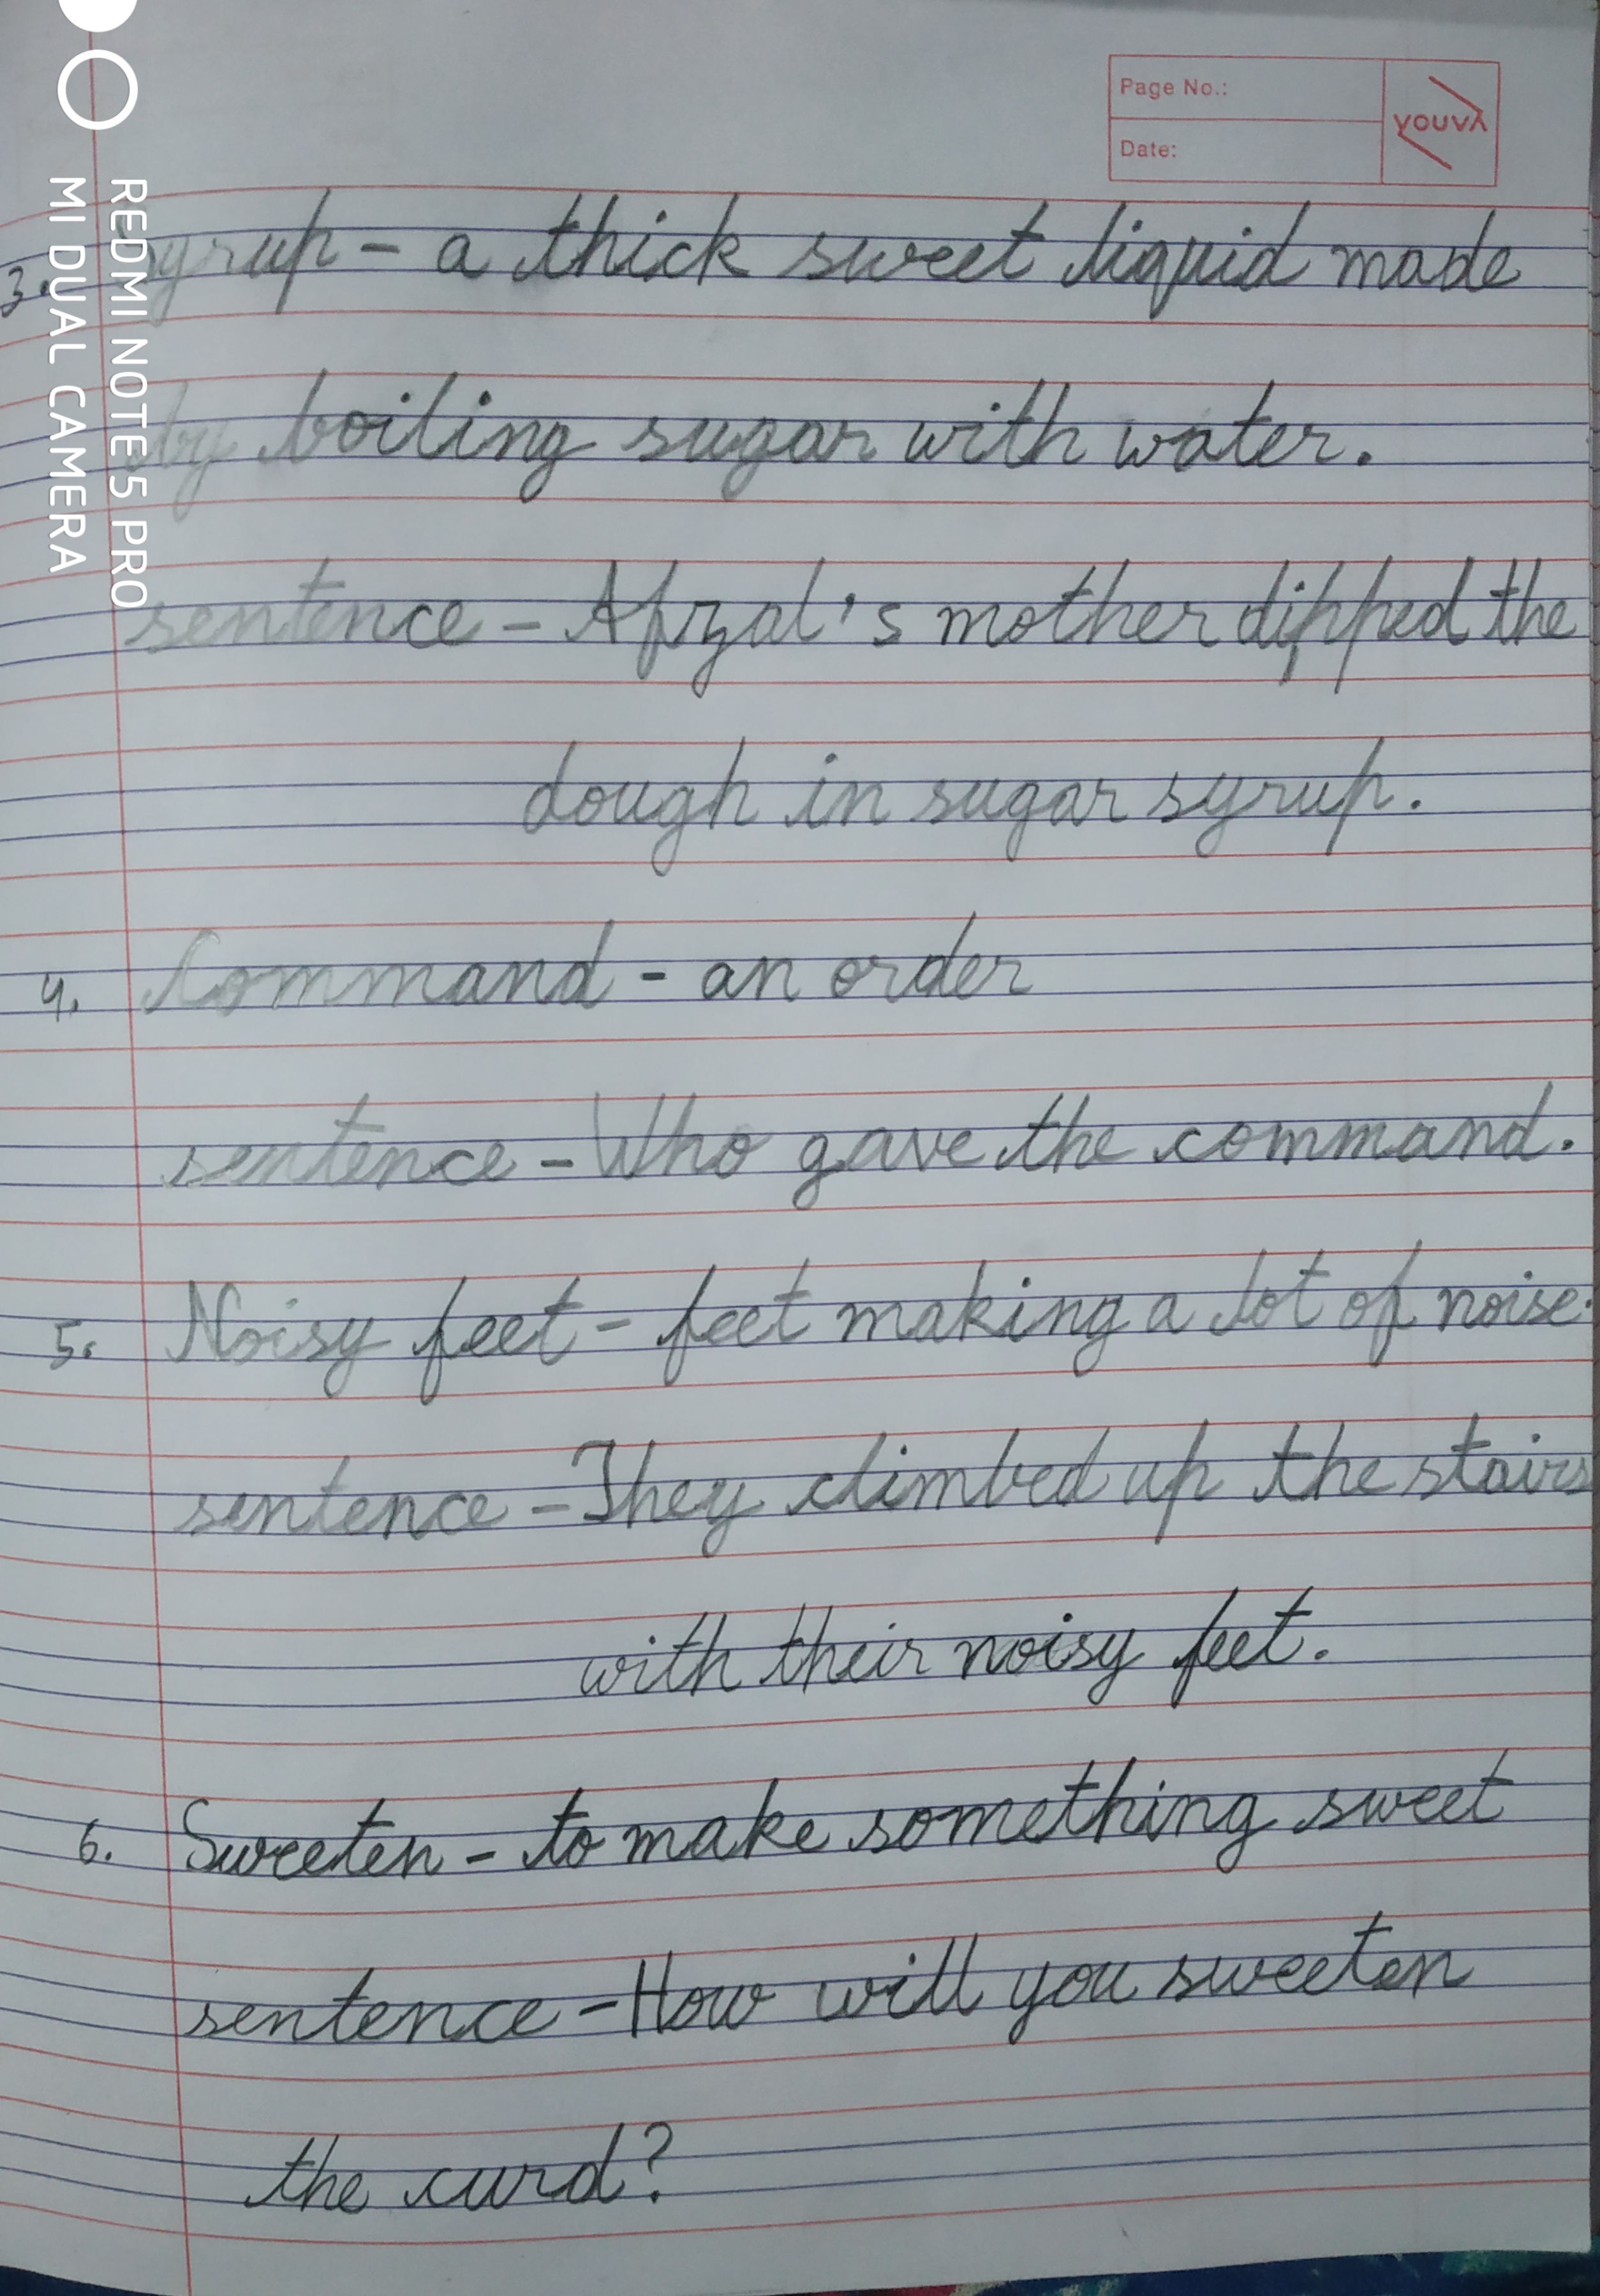 Page No.:
Date:
youva
3. Syrup - a thick sweet liquid made
by boiling sugar with water.
sentence - Afzal's mother dipped the
dough in sugar syrup.
4. Command - an order
sentence - Who gave the command.
5. Noisy feet - feet making a lot of noise.
sentence - They climbed up the stairs
with their noisy feet.
6. Sweeten - to make something sweet
sentence - How will you sweeten
the curd?
REDMI NOTE 5 PRO
MI DUAL CAMERA